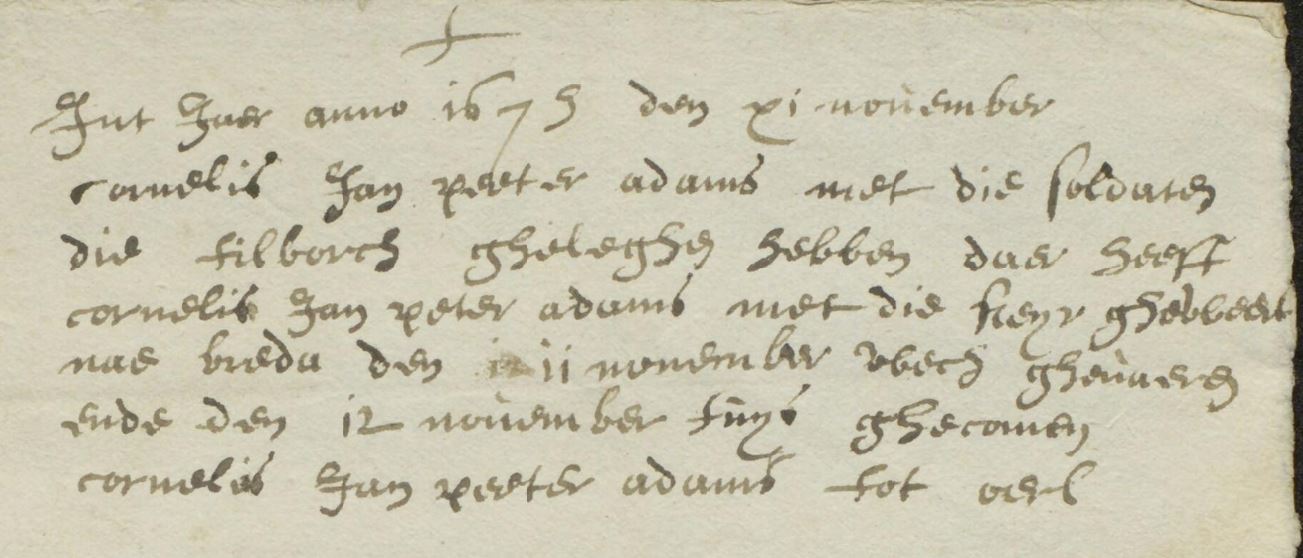 Int Jaer anno 1675 den xi november
cornelis Jan peeter adams met die soldaten
die tilborch gheleghen hebben daer heeft
cornelis Jan peter adams met die
nae breda den 11 november wech ghevaeren
ende den 12 november tuys ghecomen
cornelis Jan peeter adams tot oerl